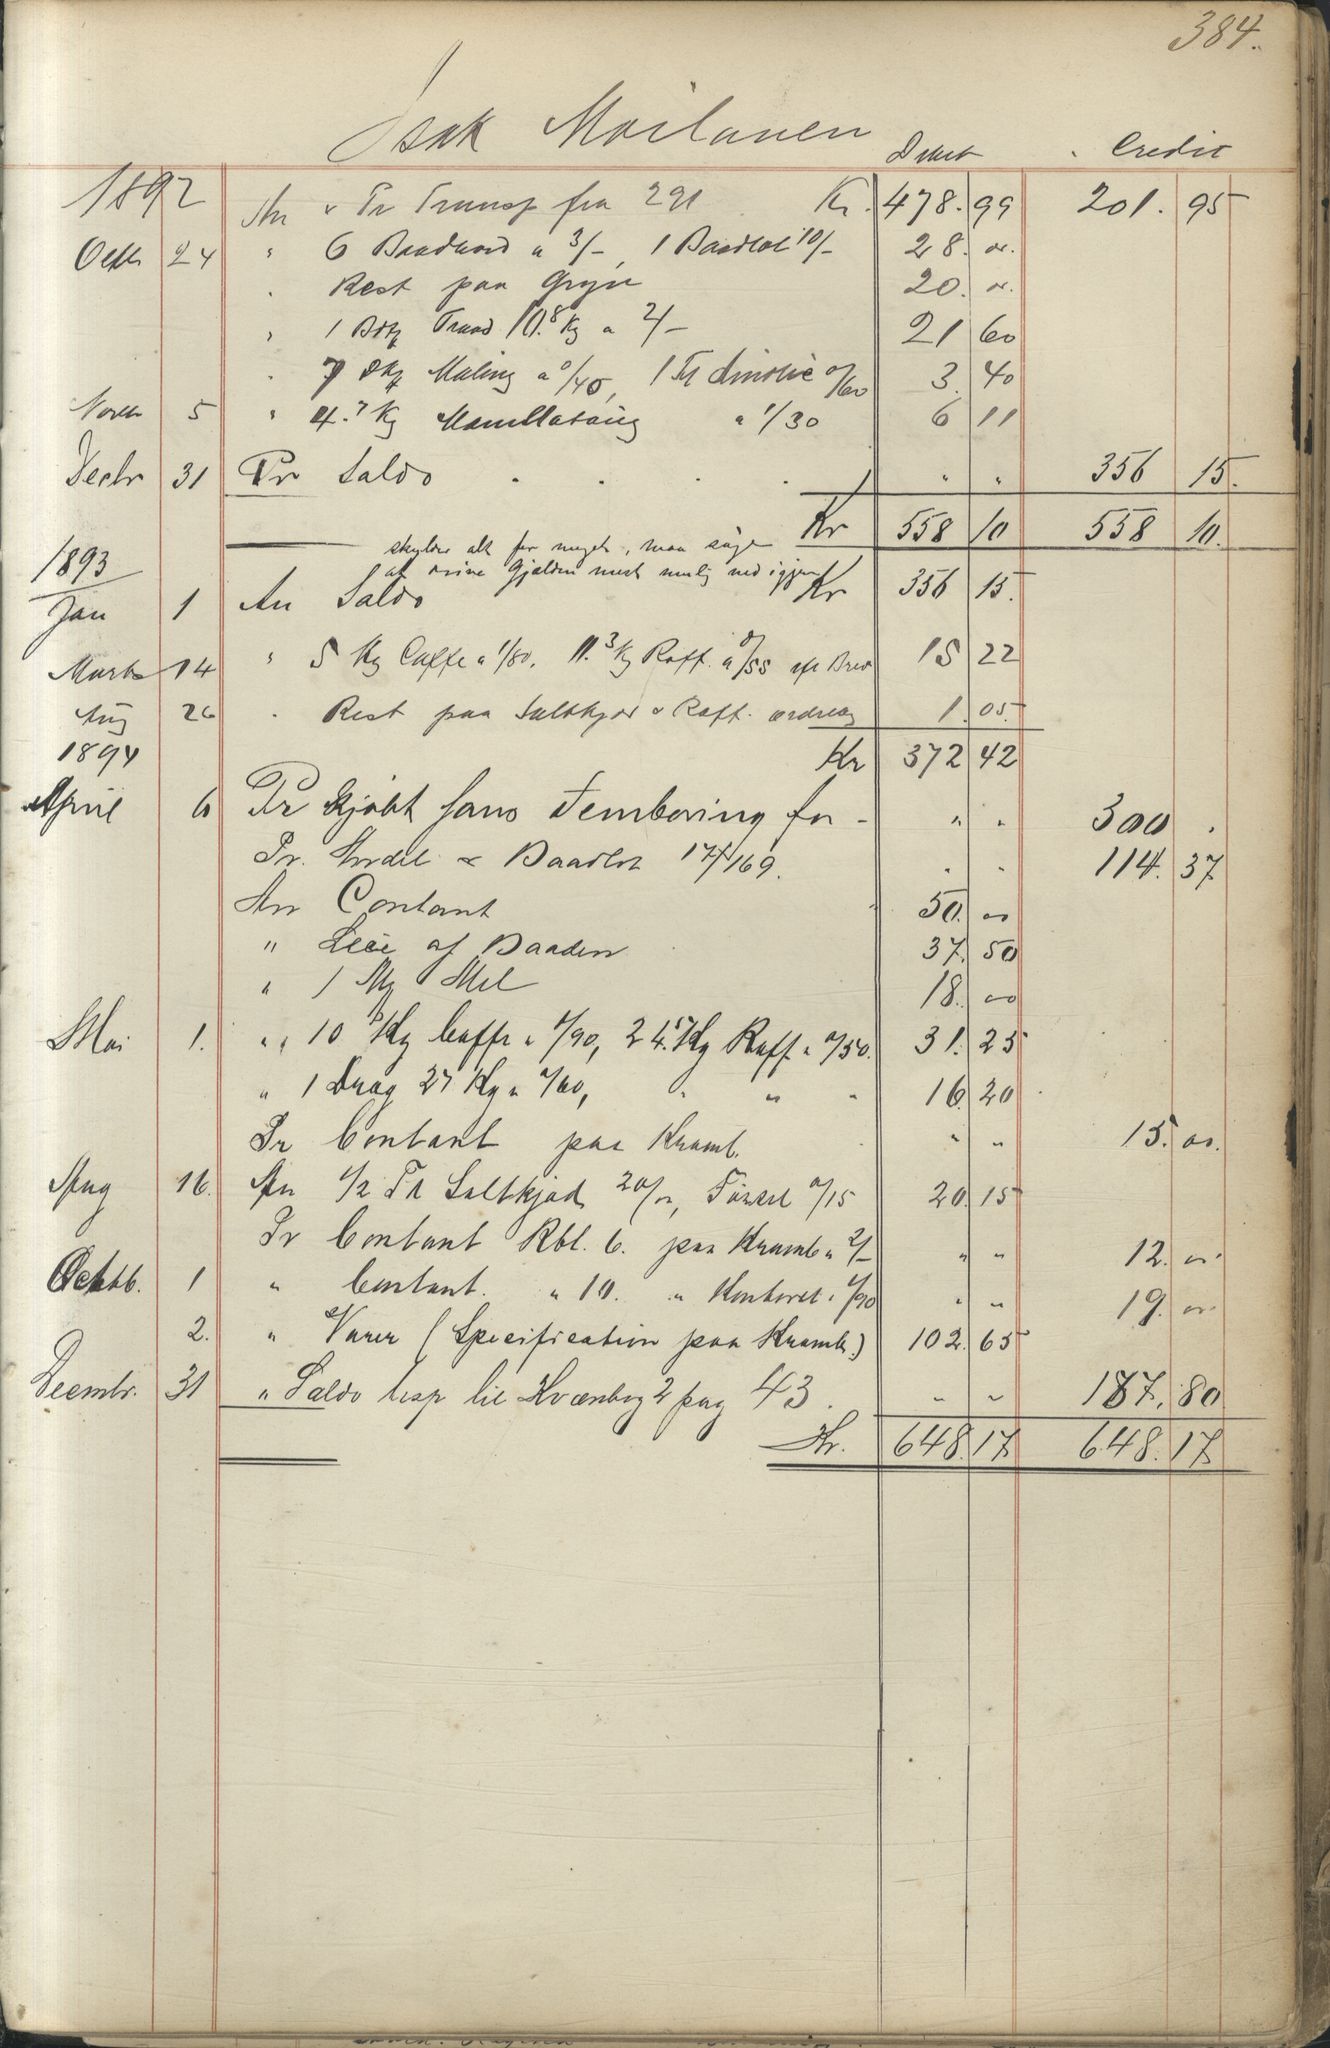 384.
Isak Moilanen
Debet Credit
1892 An & Pr Transp fra 291 Kr. 478. 99 201. 95
Octb 24 " 6 Baadbord a 3/-, 1 10/- 28. oo.
" Rest paa Gryn 20. oo.
" 1 Traad 10.8 Kg a 2/- 21 60
" 7 Maling a 0/40, 1 Linolie 0/60 3. 40
Novbr 5 " 4.7 Kg Manillatoug a 1/30 6 11
Decbr 31 Pr Saldo . . . . " " 356 15.
Kr 558 10 558 10.
skylder alt for meget, maa søge
1893 at drive Gjælden mest mulig ned igjen
Jan 1 An Saldo Kr 356 15.
Marts 14 " 5 Kg Caffe a 1/80, 11.3 Kg Raff. a 0/55 efr Brev 15 22
Aug 26 " Rest paa Saltkjød & Raff. 1. 05.
1894 Kr 372 42
April 6 Pr Kjøbt hans Fembøring for - " " 300 .
Pr. & Baadlot 17/169. " " 114. 37
An Contant 50. oo
" Leie af Baaden 37. 50
" 1 Mel 18. oo
Mai 1. " 10 Kg Caffe a 1/90, 24.5 Kg Raff. a 0/50. 31. 25
" 1 Drag 27 Kg a 0/60, " " " 16. 20
Pr Contant paa Kramb. " " 15. oo.
Aug 16. An 1/2 Td Saltkjød 20/oo, 0/15 20. 15
Pr Contant Rbl. 6. paa Kramb a 2/- " " 12. oo
Octb. 1 " Contant. " 10. " Kontoret a 1/90 " " 19. oo
2. " Varer (Specification paa Kramb.) 102. 65
Decmbr. 31 " Saldo trsp til Kvænbog 2 pag 43. " " 187. 80
Kr. 648. 17 648. 17